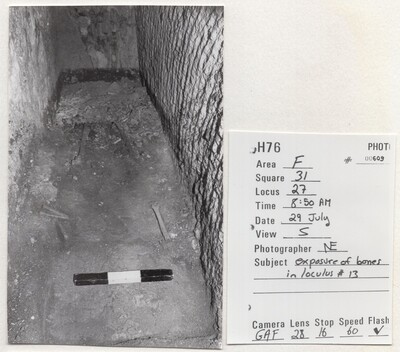 H76 PHOT
Area F # 00609
Square 31
Locus 27
Time 8:50 AM
Date 29 July
View S
Photographer NE
Subject exposure of bones
in loculus # 13
Camera Lens Stop Speed Flash
GAF 28 16 60 ✓